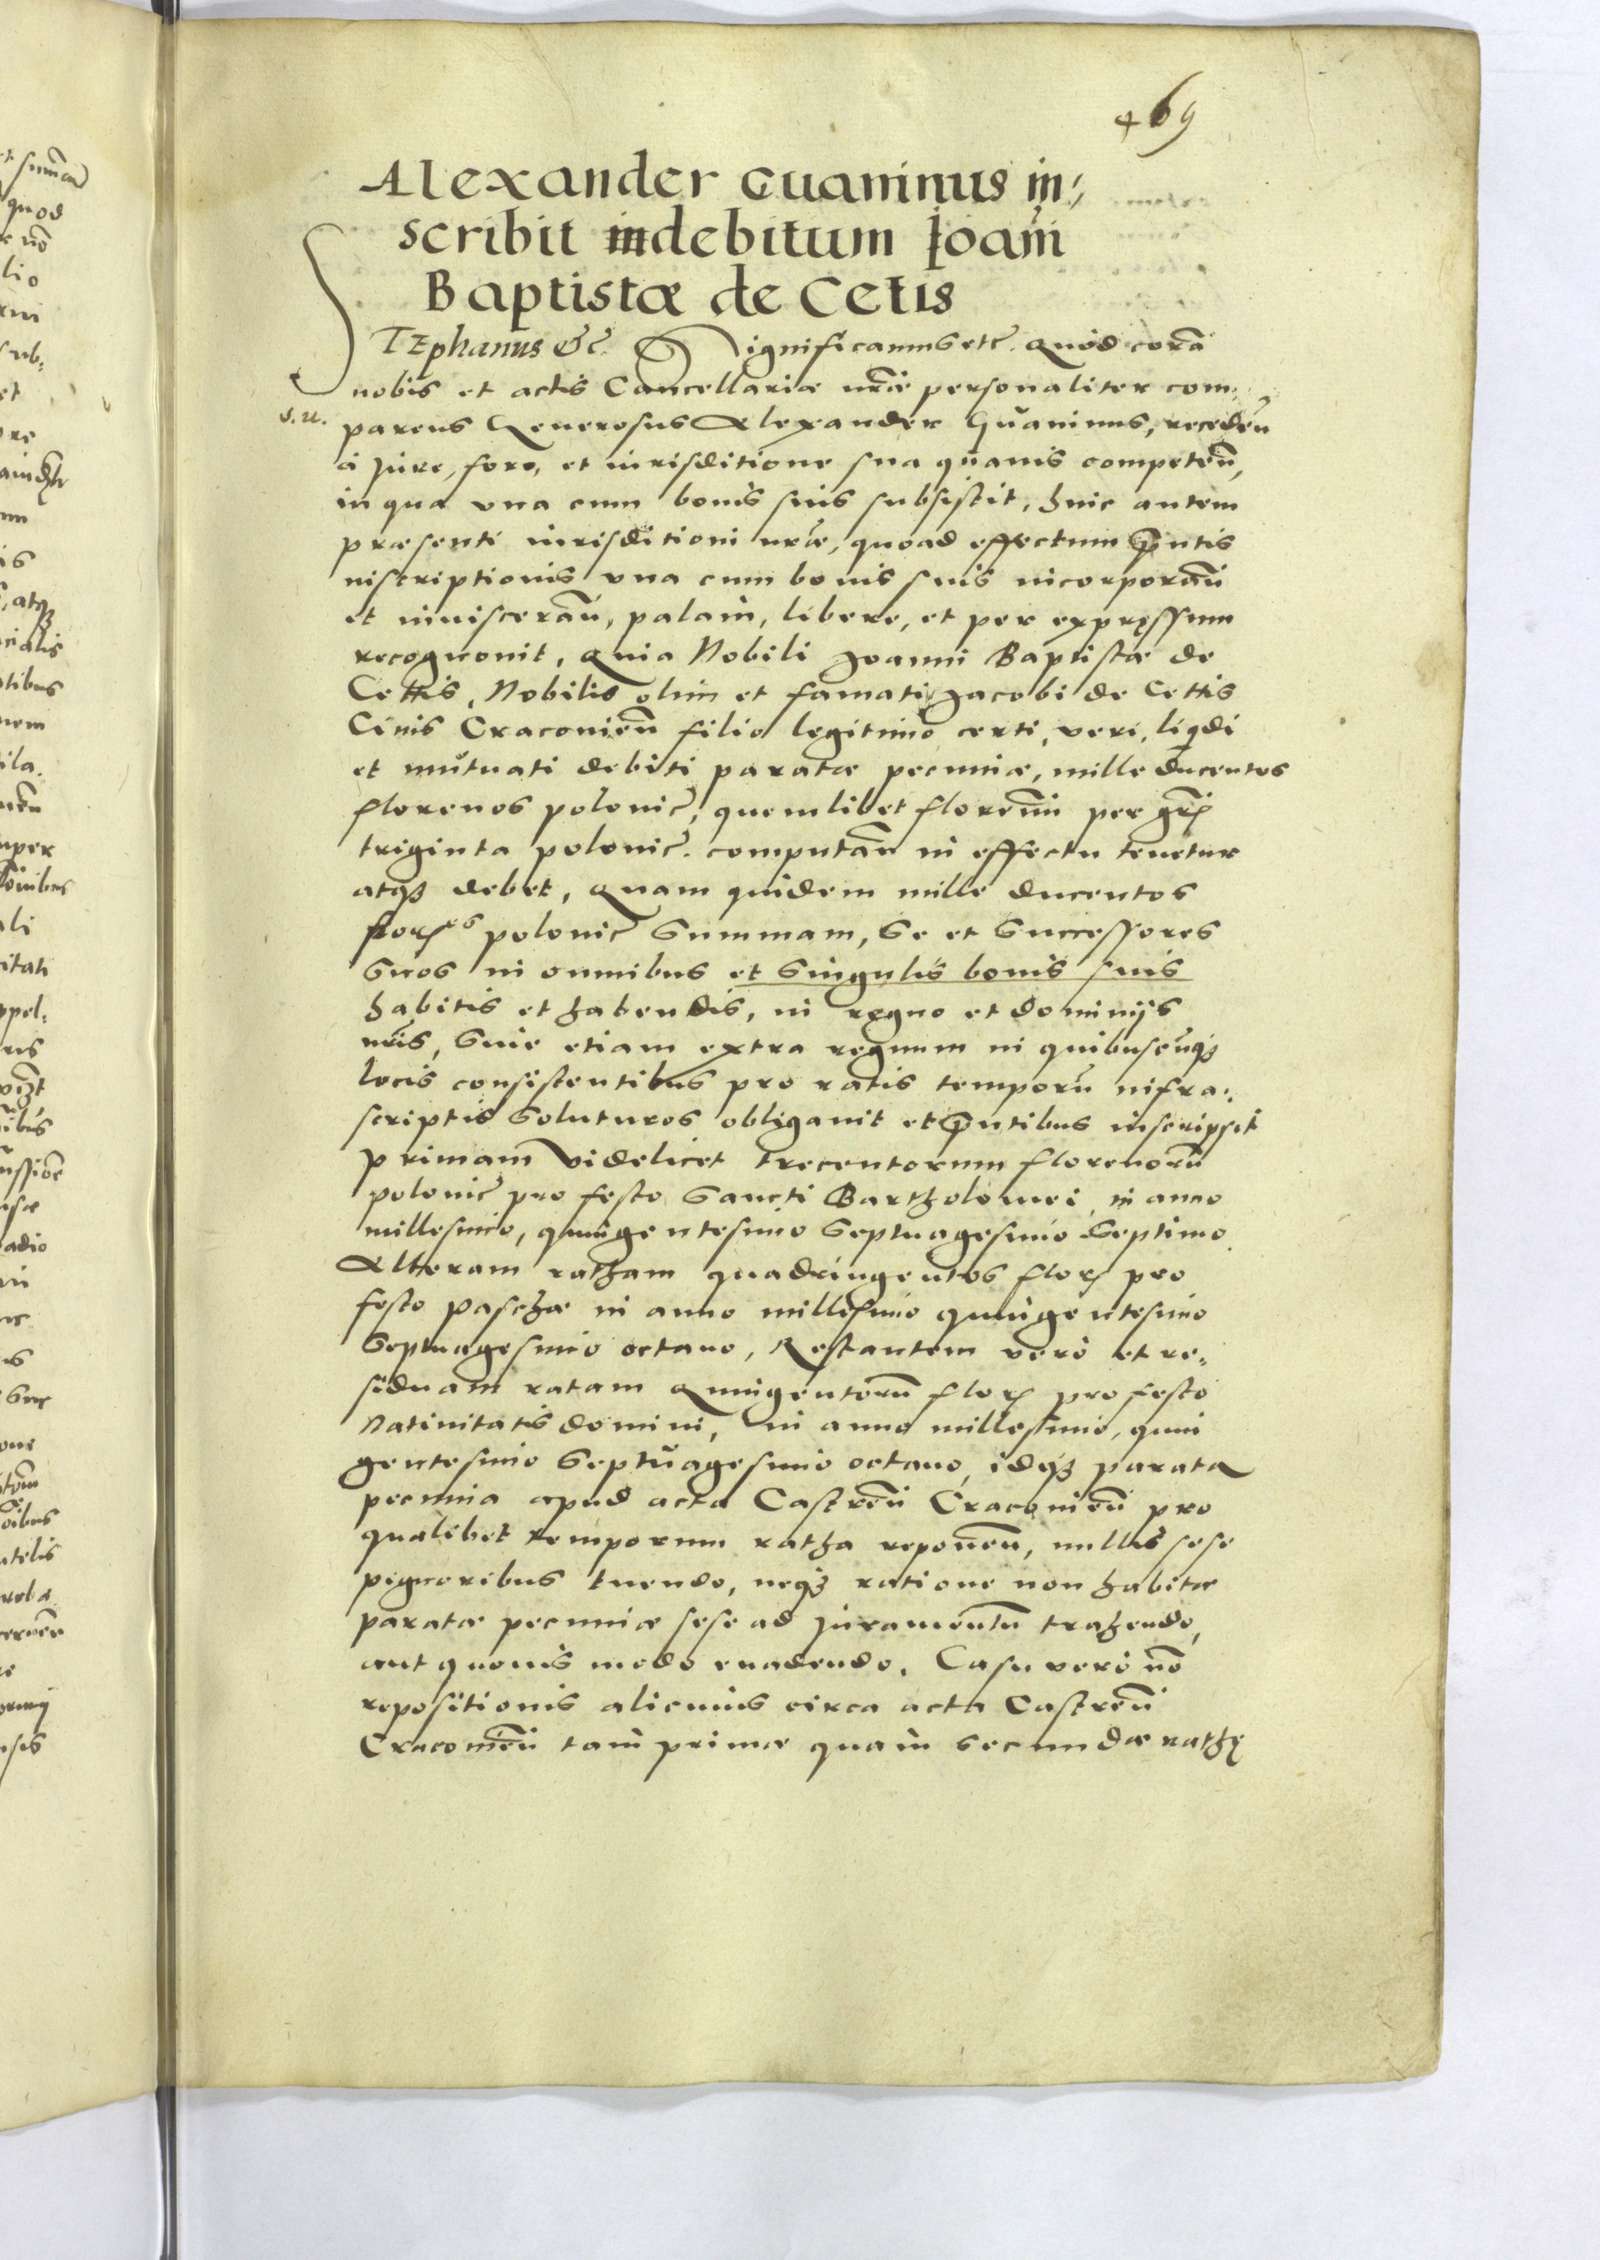 469
Alexander Guaninus in,
scribit indebitum Ioañi
Baptistæ de Cetis
STEphanus &c̃. Significamus etc̃. Quod corã
nobis et actis Cancellariæ nrãe personaliter com,
s. u.
parens Generosus Alexander Guaninus, recedeñ
à Jure, foro, et iurisditione sua quauis competeñ,
in qua vna cum bonis suis subsistit, huic autem
præsenti iurisditioni nrãe, quoad effectum p̃ntis
inscriptionis vna cum bonis suis incorporañ
et inuiscerañ, palam, libere, et per expressum
recognouit, Quia Nobili Joanni Baptistæ de
Cettis, Nobilis olim et famati Jacobi de Cettis
Ciuis Cracouieñ filio legitimo certi, veri, liqdi
et mutuati debiti paratæ pecuniæ, mille ducentos
florenos polonic̃, quemlibet floreñu per gr̃
triginta polonic̃. computañ in effectu tenetur
atqȝ debet, Quam quidem mille ducentos
floros polonic̃ Summam, Se et Successores
Suos in omnibus et Singulis bonis suis
habitis et habendis, in regno et dominijs
nrĩs, Siue etiam extra regnum in quibuscũqȝ
locis consistentibus pro ratis temporũ infra,
scriptis Soluturos obligauit et p̃ntibus inscripsit
primam Videlicet trecentorum florenorũ
polonic̃ pro festo Sancti Bartholomei in anno
millesimo, quingentesimo Septuagesimo Septimo
Alteram ratham quadringentos flor pro
festo Paschæ in anno millesimo quingentesimo
Septuagesimo octauo, Restantem verò et re,
siduam ratam Quingentorũ flor pro festo
Natiuitatis domini, in anno millesimo, quin
gentesimo Septuagesimo octauo, idqȝ parata
pecunia apud acta Castreñ Cracouieñ pro
qualibet temporum ratha reponeñ, nullis sese
pignoribus tuendo, neqȝ ratione non habitæ
paratæ pecuniæ sese ad Juramentũ trahendo,
aut quouis modo euadendo. Casu verò nõ
repositionis alicuius circa acta Castreñ
Cracouieñ tam primæ quam secundæ rathę